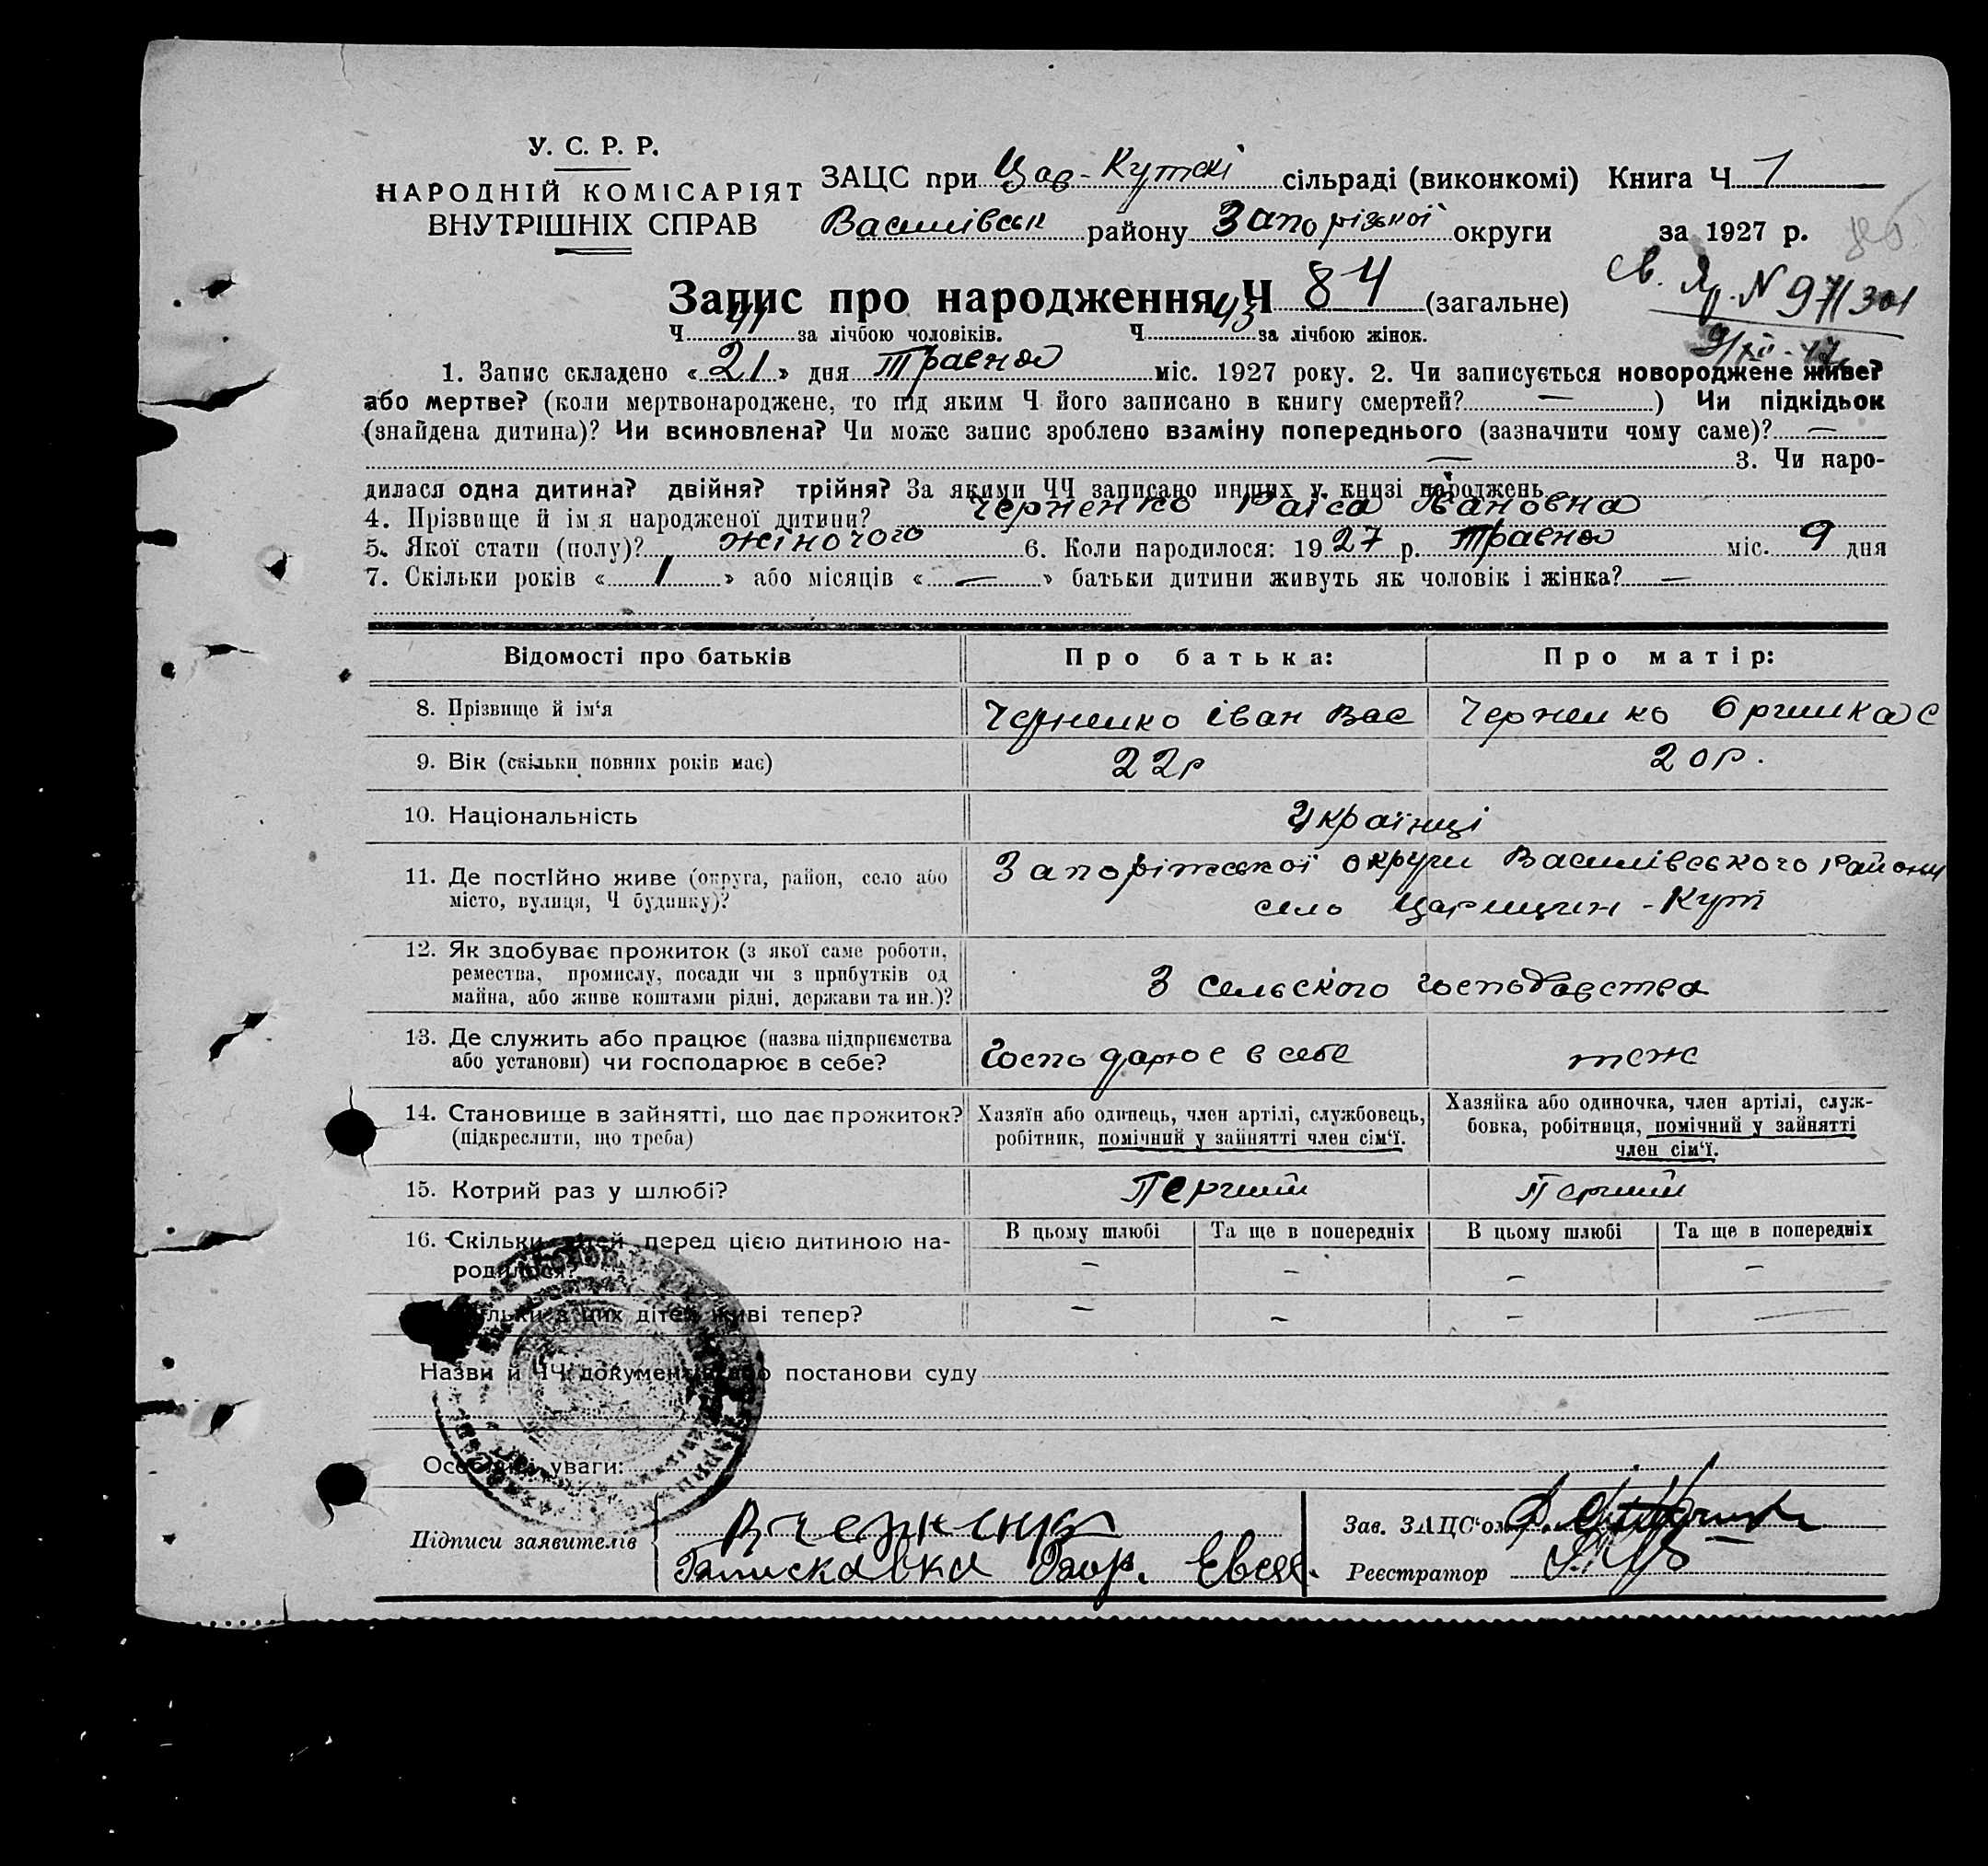 У. С. Р. Р.
НАРОДНІЙ КОМІСАРІЯТ
ВНУТРІШНІХ СПРАВ
ЗАЦС при Цар-Кутскі сільраді (виконкомі) Книга Ч 1
Василівськ району Запоріжкої округи за 1927 р.
Запис про народження Ч 84 (загальне)
№ 97/301
Ч 41 за лічбою чоловіків. Ч 43 за лічбою жінок.
1. Запис складено « 21 » дня Травня міс. 1927 року. 2. Чи записується новороджене живе?
або мертве? (коли мертвонароджене, то під яким Ч його записано в книгу смертей? — ) Чи підкідьок
(знайдена дитина)? Чи всиновлена? Чи може запис зроблено взаміну попереднього (зазначити чому саме)? —
— 3. Чи наро-
дилася одна дитина? двійня? трійня? За якими ЧЧ записано инших у книзі народжень
4. Прізвище й ім'я народженої дитини? Черненко Раїса Івановна
5. Якої стати (полу)? жіночого 6. Коли народилося: 1927 р. Травня міс. 9 дня
7. Скільки років « 1 » або місяців « — » батьки дитини живуть як чоловік і жінка? —
Відомості про батьків Про батька: Про матір:
8. Прізвище й ім'я Черненко Іван Вас Черненко Оришка С
9. Вік (скільки повних років має) 22р 20р.
10. Національність Українці
11. Де постійно живе (округа, район, село або Запоріжської округи Василівського району
місто, вулиця, Ч будинку)? село Царицин-Кут
12. Як здобуває прожиток (з якої саме роботи,
ремества, промислу, посади чи з прибутків од
майна, або живе коштами рідні, держави та ин.)? З сельского господарства
13. Де служить або працює (назва підприємства
або установи) чи господарює в себе? Господарює в себе теж
14. Становище в зайнятті, що дає прожиток? Хазяїн або одинець, член артілі, службовець, Хазяйка або одиночка, член артілі, служ-
(підкреслити, що треба) робітник, помічний у зайнятті член сім'ї. бовка, робітниця, помічний у зайнятті
член сім'ї.
15. Котрий раз у шлюбі? Перший Перший
16. Скільки дітей перед цією дитиною на- В цьому шлюбі Та ще в попередніх В цьому шлюбі Та ще в попередніх
родилося? — — — —
Скільки з цих дітей живі тепер? — — — —
Назви й ЧЧ документів або постанови суду
Особливі уваги:
Підписи заявителів
Зав. ЗАЦС'ом
Реєстратор